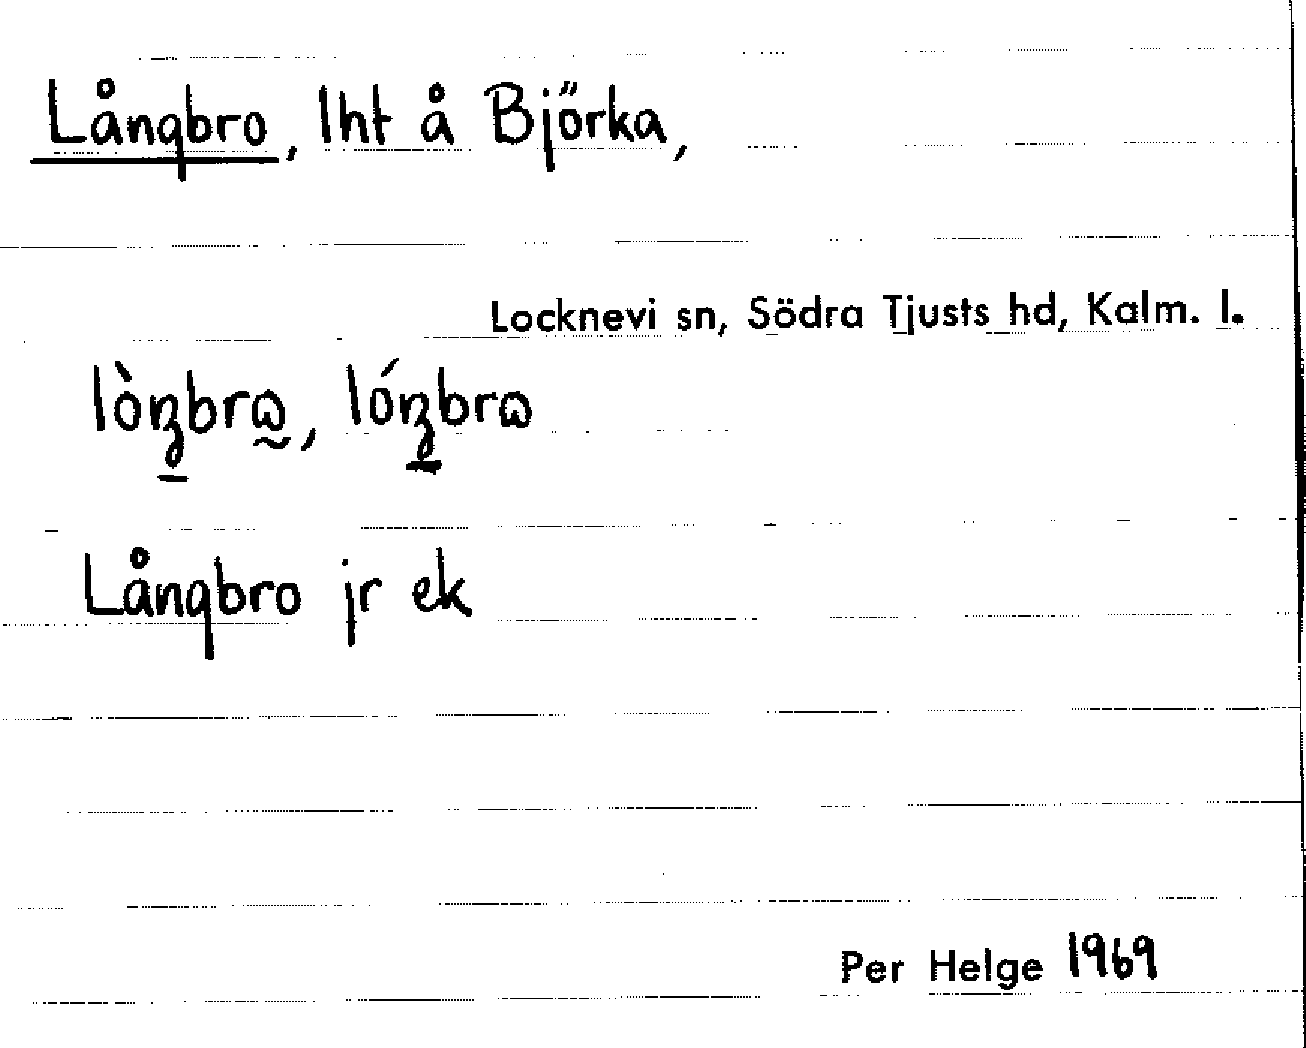 Långbro, lht å Björka,
Locknevi sn, Södra Tjusts hd, Kalm. l.
lòn̡brɷ̰, lón̡brɷ
Långbro jr ek
Per Helge 1969